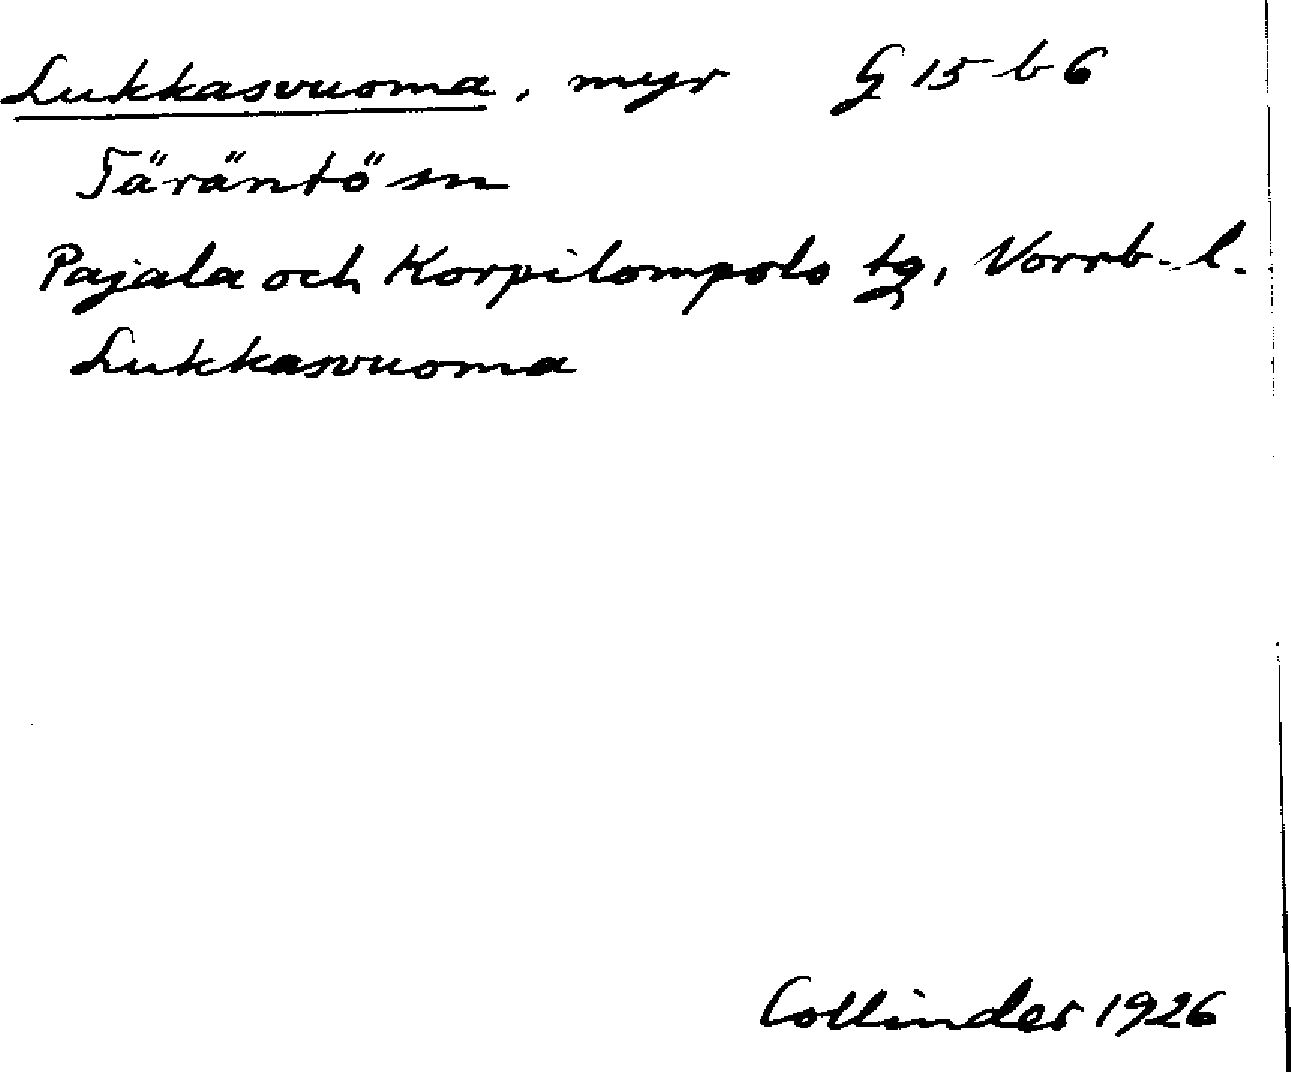 Lukkasvuoma, myr G 15 b 6
Täräntö sn
Pajala och Korpilompolo tg, Norrb. l.
Lukkasvuoma
Collinder 1926